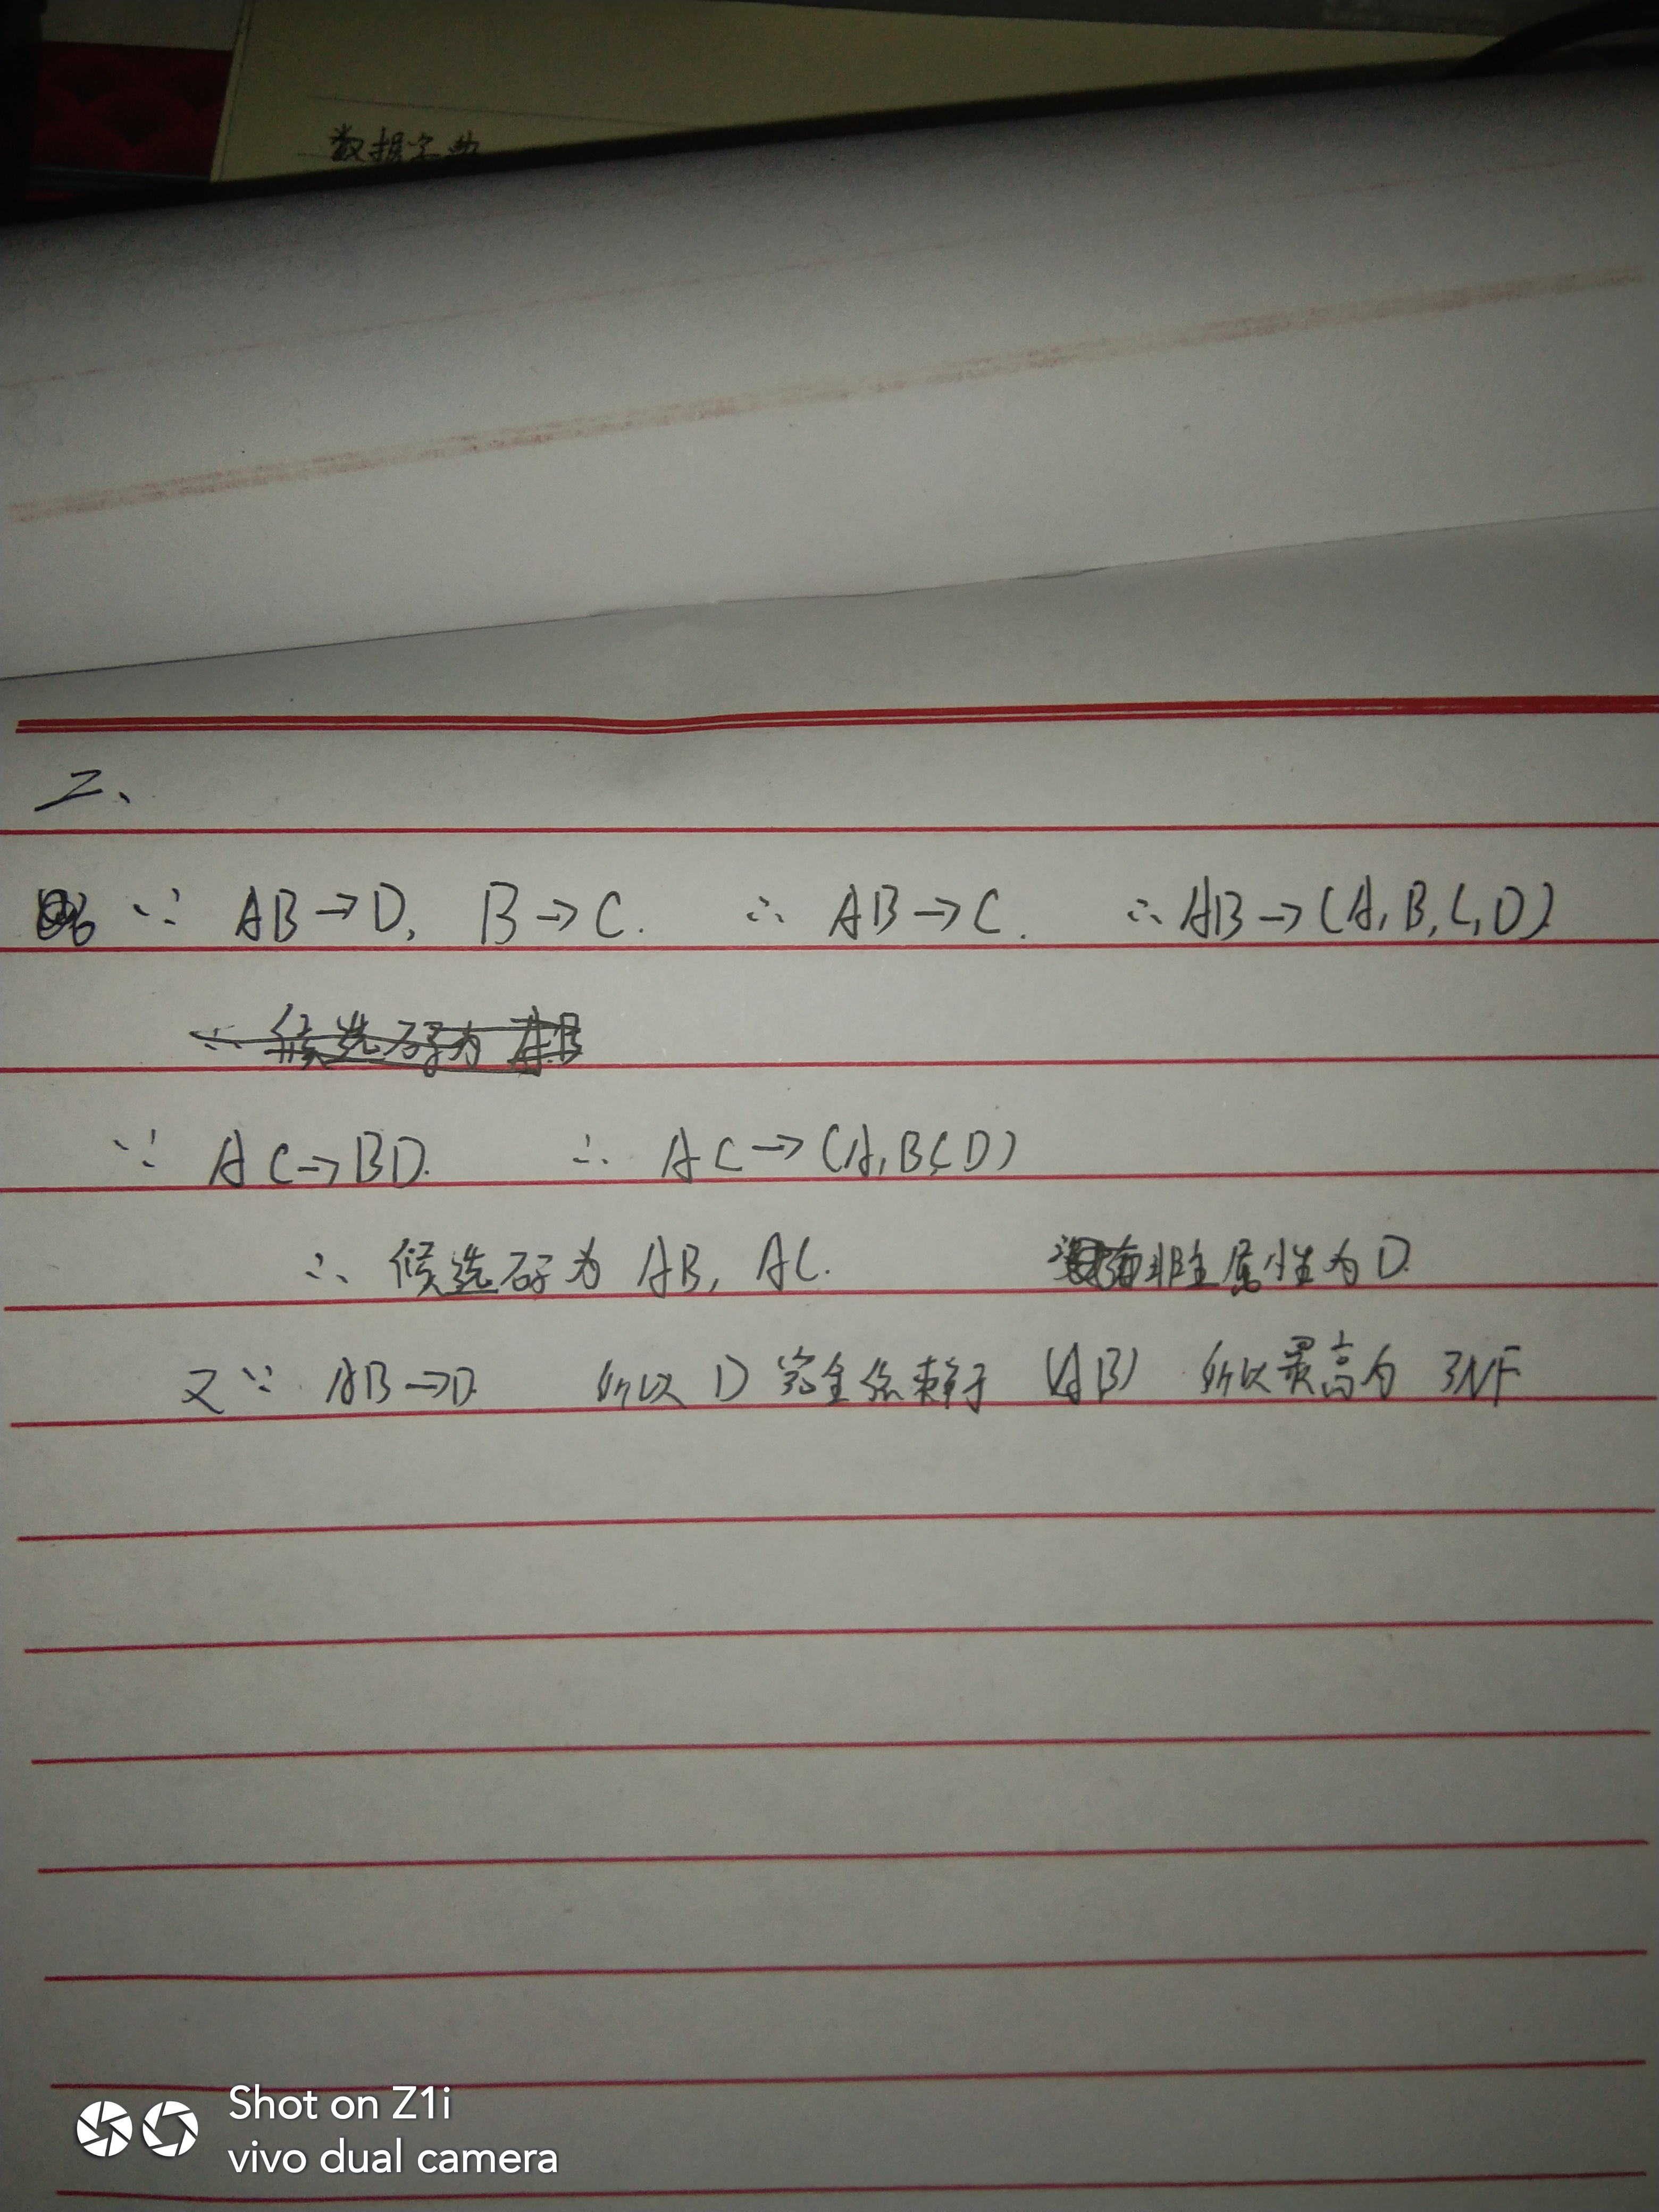 数据字典
二、
∵ AB→D, B→C. ∴ AB→C. ∴ AB→(A,B,C,D)
∴ 候选码为 AB
∵ AC→BD. ∴ AC→(A,BCD)
∴ 候选码为 AB, AC. 非主属性为D.
又∵ AB→D 所以 D 完全依赖于 (AB) 所以最高为 3NF
Shot on Z1i
vivo dual camera